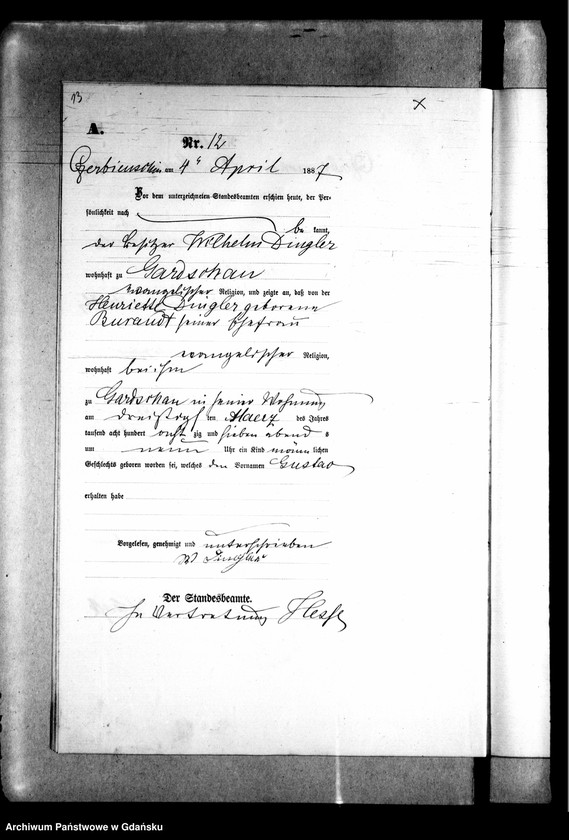 13
A.
Nr. 12
Czerbienschin am 4ᵗ April 1887
Vor dem unterzeichneten Standesbeamten erschien heute, der Per-
sönlichkeit nach
be kannt,
der Besitzer Wilhelm Dingler
wohnhaft zu Gardschau
evangelischer Religion, und zeigte an, daß von der
Henriette Dingler geborene
Burandt seiner Ehefrau
evangelischer Religion,
wohnhaft bei ihm
zu Gardschau in seiner Wohnung
am dreißigsten Maerz des Jahres
tausend acht hundert acht zig und sieben abend s
um neun Uhr ein Kind männ lichen
Geschlechts geboren worden sei, welches den Vornamen Gustav
erhalten habe
Vorgelesen, genehmigt und unterschrieben
W Dingler
Der Standesbeamte.
In Vertretung Hesse
Archiwum Państwowe w Gdańsku